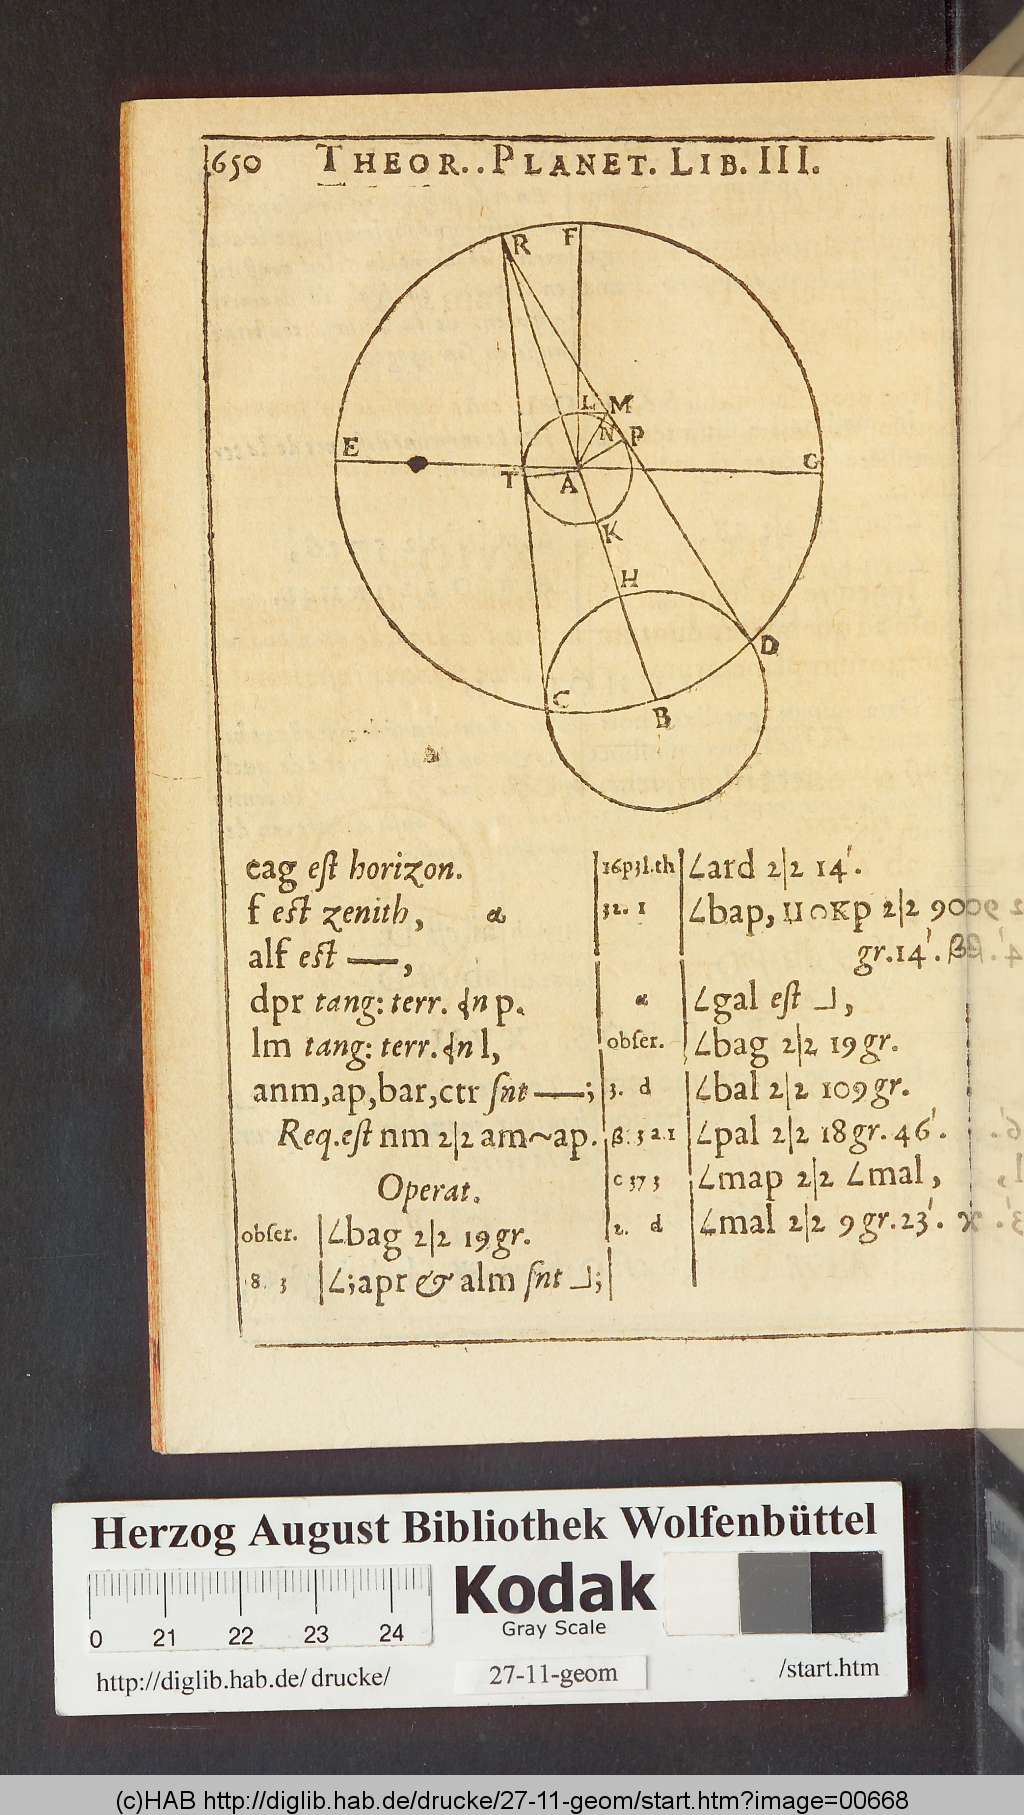 650 THEOR..PLANET. LIB. III.
R F
L M
N P
E G
T A
K
H
D
C
B
eag eſt horizon.
f eſt zenith, α
alf eſt —,
dpr tang: terr. p.
lm tang: terr. l,
anm,ap,bar,ctr ſnt —;
Req.eſt nm 2|2 am~ap.
Operat.
obſer. ∠bag 2|2 19 gr.
8. 3 ∠;apr & alm ſnt ⅃;
16.p31.th ∠ard 2|2 14′.
32. 1 ∠bap, 2|2 90
gr.14′. β
α ∠gal eſt ⅃,
obſer. ∠bag 2|2 19 gr.
3. d ∠bal 2|2 109 gr.
β. 3 2.1 ∠pal 2|2 18 gr. 46′.
c 37 3 ∠map 2|2 ∠mal,
2. d ∠mal 2|2 9 gr. 23′. ϰ
Herzog August Bibliothek Wolfenbüttel
Kodak
Gray Scale
0 21 22 23 24
http://diglib.hab.de/ drucke/ 27-11-geom /start.htm
(c)HAB http://diglib.hab.de/drucke/27-11-geom/start.htm?image=00668